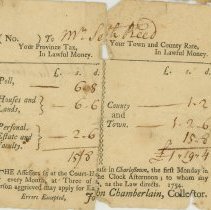 (No. ) To Mr Seth Reed
Your Province Tax, Your Town and County Rate,
In Lawful Money. In Lawful Money.
£. s. d. £. s. d.
Poll, 6..8
Houses and Lands, 6..6 County 1..2
and
Personal, Estate and Faculty. 2..6 Town. 1..2..6
15/8 15..8
£1..19..4
THE Assessors sit at the Court-H in Charlestown, the first Monday in
every Month, at Three of the Clock Afternoon; to whom any
person aggrieved may apply for as the Law directs. 1754.
Errors Excepted, Chamberlain, Collector.